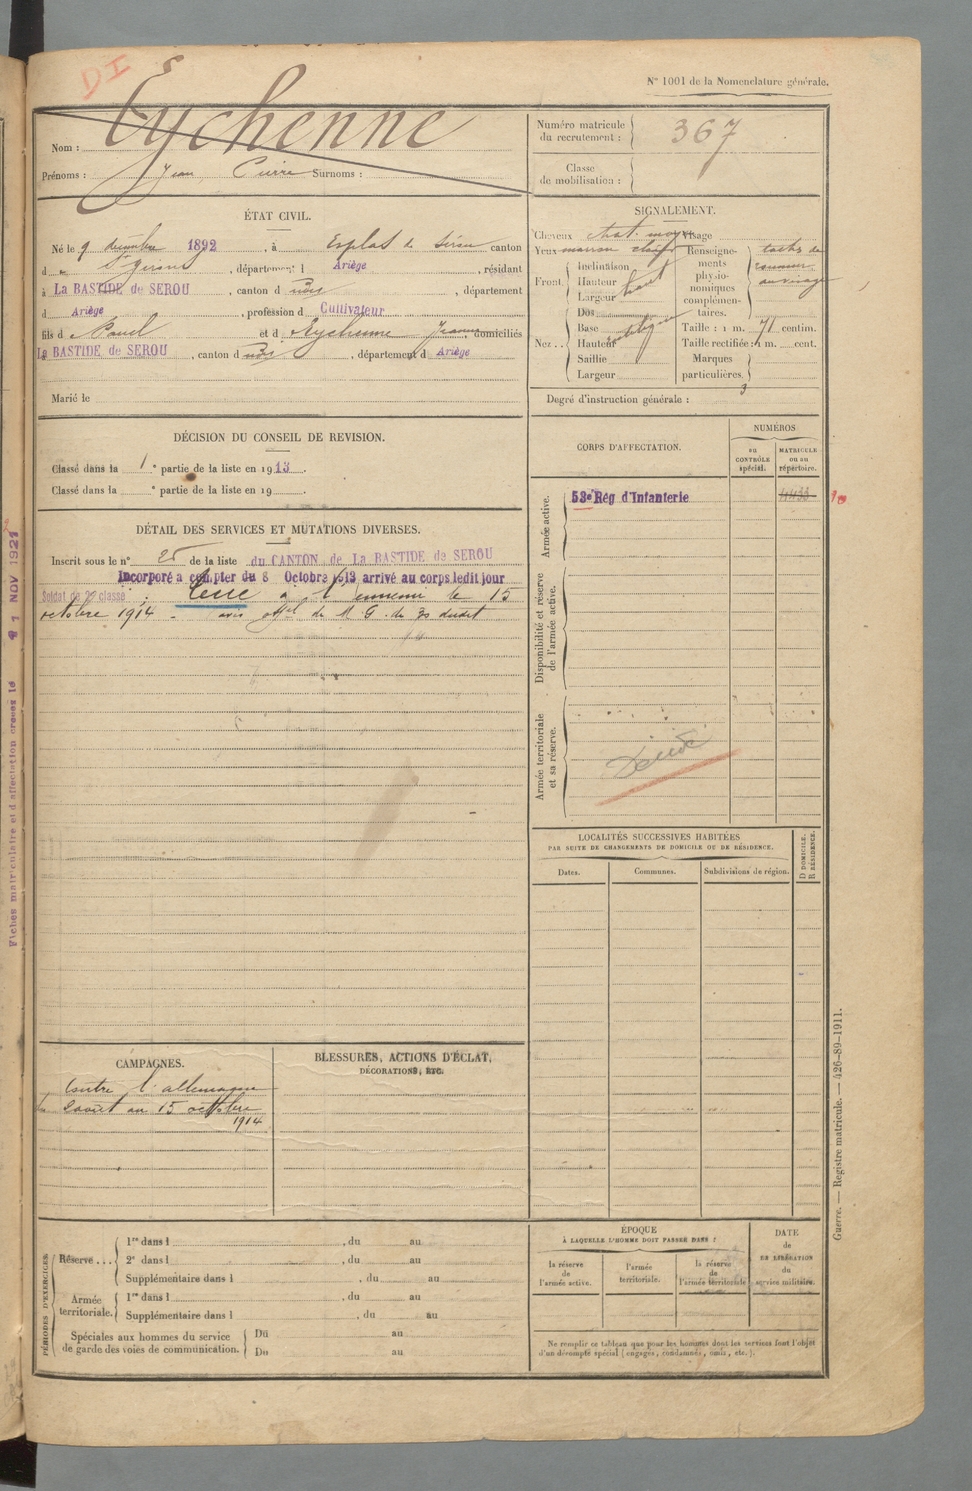 DI
N° 1001 de la Nomenclature générale.
Nom : Eychenne
Prénoms : Jean Pierre Surnoms :
Numéro matricule du recrutement : 367
Classe de mobilisation :
ÉTAT CIVIL.
Né le 9 décembre 1892, à Esplas de Sérou canton
d St Girons, département d Ariège, résidant
à La BASTIDE de SEROU, canton d udis, département
d Ariège, profession d Cultivateur
fils d Paul et d Eychenne Jeanne domiciliés
La BASTIDE de SEROU, canton d udis, département d Ariège
Marié le
SIGNALEMENT.
Cheveux chat. moyen Visage
Yeux marron clair
Front. Inclinaison
Hauteur haut
Largeur
Nez .. Dos
Base oblique
Hauteur
Saillie
Largeur
Renseignements physionomiques complémentaires. taches de rousseur au visage
Taille : 1 m. 71 centim.
Taille rectifiée : 1 m. cent.
Marques particulières.
Degré d'instruction générale : 3
DÉCISION DU CONSEIL DE REVISION.
Classé dans la 1e partie de la liste en 1913.
Classé dans la e partie de la liste en 19
CORPS D'AFFECTATION.
NUMÉROS
au CONTRÔLE spécial.
MATRICULE ou au répertoire.
Armée active.
53e Rég d'Infanterie
Disponibilité et réserve de l'armée active.
Armée territoriale et sa réserve.
Décédé
DÉTAIL DES SERVICES ET MUTATIONS DIVERSES.
Inscrit sous le n° 25 de la liste du CANTON de La BASTIDE de SEROU
Incorporé à compter du 8 Octobre 1913 arrivé au corps ledit jour
Soldat de 2e classe ; tué à l'ennemi le 15
octobre 1914 - avis offel du M G. du 30 dudit
Fiches matriculaire et d'affectation creees le 21 NOV 1921
LOCALITÉS SUCCESSIVES HABITÉES
PAR SUITE DE CHANGEMENTS DE DOMICILE OU DE RÉSIDENCE.
Dates.
Communes.
Subdivisions de région.
D DOMICILE.
R RÉSIDENCE.
CAMPAGNES.
Contre l'allemagne
du 2 août au 15 octobre
1914
BLESSURES, ACTIONS D'ÉCLAT,
DÉCORATIONS, ETC.
PÉRIODES D'EXERCICES.
Réserve ... 1re dans l , du au
2e dans l , du au
Supplémentaire dans l , du au
Armée territoriale. 1re dans l , du au
Supplémentaire dans l , du au
Spéciales aux hommes du service
de garde des voies de communication. Du au
Du au
ÉPOQUE
À LAQUELLE L'HOMME DOIT PASSER DANS :
la réserve de l'armée active.
l'armée territoriale.
la réserve de l'armée territoriale
DATE de LA LIBÉRATION du service militaire.
Ne remplir ce tableau que pour les hommes dont les services font l'objet
d'un décompte spécial (engagés, condamnés, omis, etc.).
Guerre. — Registre matricule. — 426-89-1911.